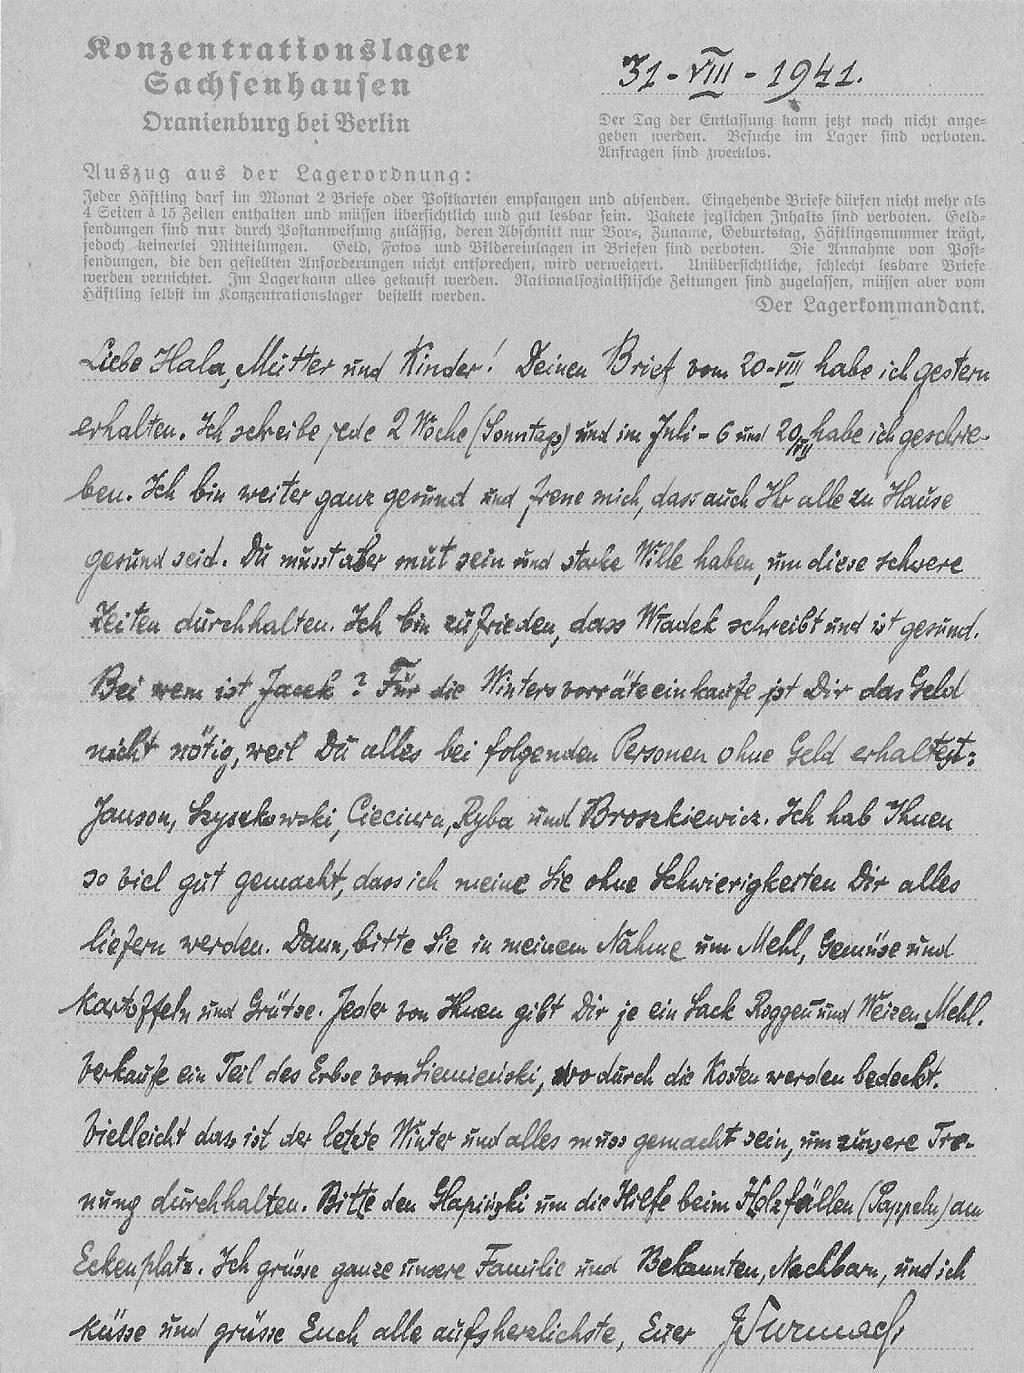 Konzentrationslager
Sachsenhausen
Oranienburg bei Berlin
31-VIII-1941.
Der Tag der Entlassung kann jetzt noch nicht ange=
geben werden. Besuche im Lager sind verboten.
Anfragen sind zwecklos.
Auszug aus der Lagerordnung:
Jeder Häftling darf im Monat 2 Briefe oder Postkarten empfangen und absenden. Eingehende Briefe dürfen nicht mehr als
4 Seiten à 15 Zeilen enthalten und müssen übersichtlich und gut lesbar sein. Pakete jeglichen Inhalts sind verboten. Geld=
sendungen sind nur durch Postanweisung zulässig, deren Abschnitt nur Vor=, Zuname, Geburtstag, Häftlingsnummer trägt,
jedoch keinerlei Mitteilungen. Geld, Fotos und Bildereinlagen in Briefen sind verboten. Die Annahme von Post=
sendungen, die den gestellten Anforderungen nicht entsprechen, wird verweigert. Unübersichtliche, schlecht lesbare Briefe
werden vernichtet. Im Lager kann alles gekauft werden. Nationalsozialistische Zeitungen sind zugelassen, müssen aber vom
Häftling selbst im Konzentrationslager bestellt werden.
Der Lagerkommandant.
Liebe Hala, Mutter und Kinder! Deinen Brief vom 20-VIII habe ich gestern
erhalten. Ich schreibe jede 2 Woche (Sonntags) und im Juli - 6 und 20/VII habe ich geschrie-
ben. Ich bin weiter ganz gesund und freue mich, dass auch Ihr alle zu Hause
gesund seid. Du musst aber mut sein und starke Wille haben, um diese schwere
Zeiten durchhalten. Ich bin zufrieden, dass Władek schreibt und ist gesund.
Bei wem ist Jacek? Für die Wintersvorräteeinkaufe ist Dir das Geld
nicht nötig, weil Du alles bei folgenden Personen ohne Geld erhaltest:
Janson, Szyszkowski, Cieciura, Ryba und Broszkiewicz. Ich hab Ihnen
so viel gut gemacht, dass ich meine Sie ohne Schwierigkeiten Dir alles
liefern werden. Dann, bitte Sie in meinem Nahme um Mehl, Gemüse und
Kartoffeln und Grütze. Jeder von Ihnen gibt Dir je ein Sack Roggen und Weizen-Mehl.
Verkaufe ein Teil des Erbse von Siemieński, wodurch die Kosten werden bedeckt.
Vielleicht das ist der letzte Winter und alles muss gemacht sein, um unsere Tre-
nung durchhalten. Bitte den Słapiński um die Hilfe beim Holzfällen (Pappeln) am
Eckenplatz. Ich grüsse ganze unsere Familie und Bekannten, Nachbarn, und ich
küsse und grüsse Euch alle aufsherzlichste, Euer